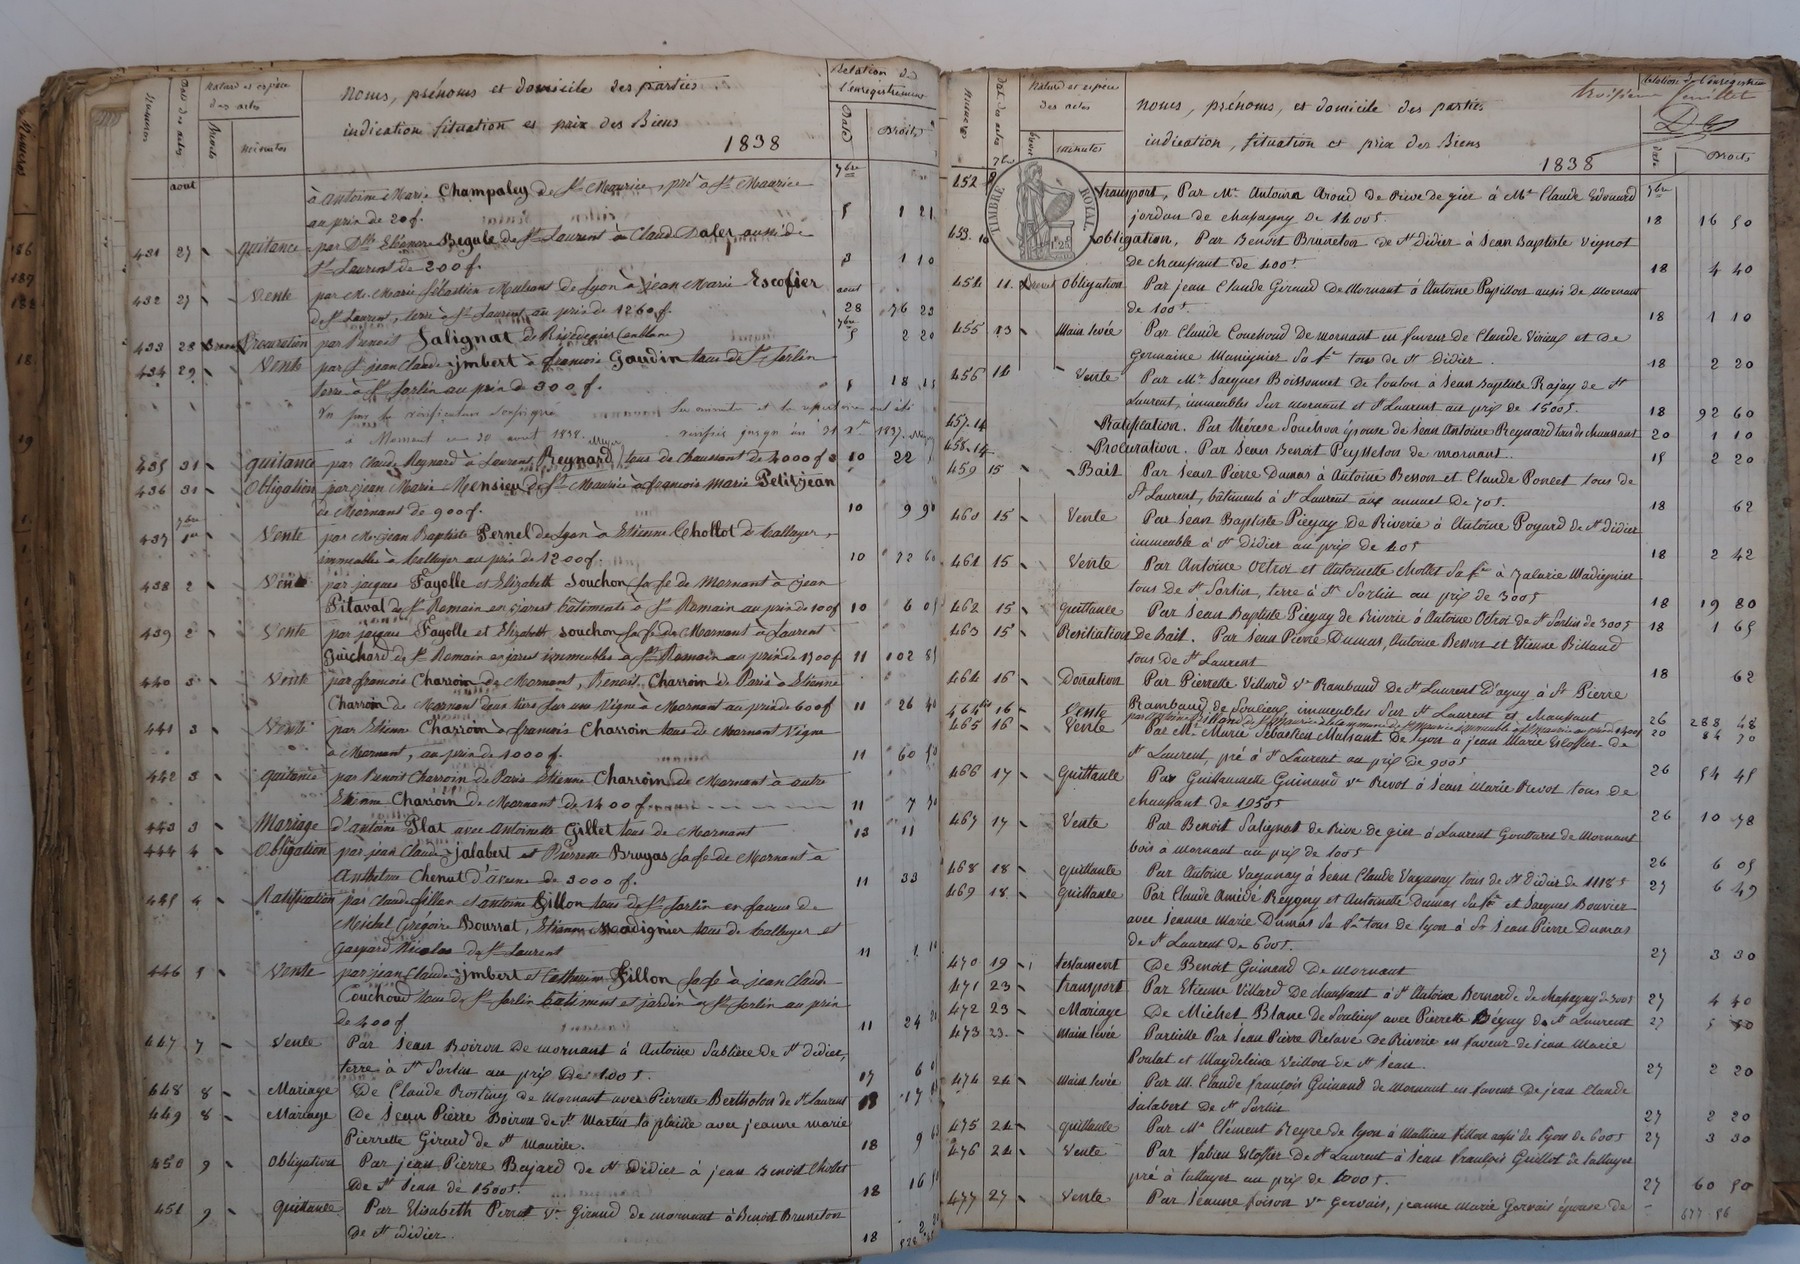 Numéros
Date des actes
Nature et espèce des actes
Brevets
minutes
Noms, prénoms et domicile des parties
indication situation et prix des Biens
1838
Relation de l'enregistrement
Date
Droits
aout
7bre
à antoine Marie Champaley de St Maurice, pré à St Maurice
au prix de 20 f. 5 1 21
431 27 quitance par Dlle Eléonore Begule de St Laurent à Claude Dafer aussi de
St Laurent de 200 f. 3 1 10
432 27 Vente par Me Marie Sébastien Mulsant de Lyon à jean Marie Escoffier
aout
de St Laurent, terre à St Laurent au prix de 1260 f. 28 76 23
7bre
433 28 Procuration par Benoit Salignat de Rivedegier (en blanc) 5 2 20
434 29 Vente par St jean Claude jmbert à françois Gaudin tous de St Sorlin
terre à St Sorlin au prix de 300 f. 5 18 15
à Mornant ce 30 aout 1838.
435 31 quitance par Claude Reynard à Laurent Reynard tous de Chaussant de 4000 f 10 22
436 31 Obligation par jean Marie Mensieu de St Maurice à françois marie Petitjean
de Mornant de 900 f. 10 9 90
7bre
437 1er Vente par Me jean Baptiste Pernel de Lyon à Etienne Chollot de talluyer,
immeubles à talluyer au prix de 1200 f. 10 72 60
438 2 Vente par jacques Fayolle et Elizabeth Souchon sa fe de Mornant à jean
Pitaval de St Romain en jarest bâtiments à St Romain au prix de 100 f 10 6 05
439 2 Vente par jacques Fayolle et Elizabeth Souchon sa fe de Mornant à Laurent
Guichard de St Romain en jarest immeubles à St Romain au prix de 1700 f 11 102 85
440 3 Vente par françois Charroin de Mornant, Benoit Charroin de Paris à Etienne
Charroin de Mornant deux tiers sur une vigne à Mornant au prix de 600 f 11 26 40
441 3 Vente par Etienne Charroin à françois Charroin tous de Mornant Vigne
à Mornant, au prix de 1000 f. 11 60 50
442 3 quitance par Benoit Charroin de Paris Etienne Charroin de Mornant à autre
Etienne Charroin de Mornant de 1400 f. 11 7 70
443 3 Mariage d'antoine Plat avec Antoinette Gillet tous de Mornant 13 11
444 4 Obligation par jean Claude jalabert et Pierrette Bruyas sa fe de Mornant à
Anthelme Chenut d'aveize de 3000 f. 11 33
445 4 Ratification par Claude fillon et antoine fillon tous de St Sorlin en faveur de
Michel Grégoire Bourrat, Etienne Madignier tous de talluyer et
Gaspard Nicolas de St Laurent 11 1 10
446 5 Vente par jean Claude jmbert et Catherine fillon sa fe à jean Claude
Couchoud tous de St Sorlin batiment et jardin à St Sorlin au prix
de 400 f 11 24 20
447 7 Vente Par Jean Boiron de mornant à Antoine Sablière de St didier,
terre à St Sorlin au prix de 100 f. 17 6 05
448 8 Mariage De Claude Rostiny de Mornant avec Pierrette Bertholon de St Laurent 18 17
449 8 Mariage De Jean Pierre Boiron de St Martin la plaine avec jeanne marie
Pierrette Girard de St Maurice. 18 9
450 9 Obligation Par jean Pierre Bajard de St didier à jean Benoit Chollet
de St Jean de 1500 f. 18 16 50
451 9 Quittance Par Elisabeth Perrot ve Giraud de mornant à Benoit Bruneton
de St didier. 18
Numéros
Date des actes
Nature et espèce des actes
minutes
Noms, prénoms, et domicile des parties
indication, situation et prix des Biens
1838
Relation de l'enregistrement
troisième feuillet
Date
Droits
TIMBRE ROYAL
7bre
452 9 transport, Par Me Antoine Aroud de Rive de gier à Me Claude Edouard
jordan de chapagny de 1400 f. 18 16 50
453 10 obligation, Par Benoit Bruneton de St Didier à Jean Baptiste Vignot
de chaussant de 400 f. 18 4 40
454 11 Brevet Obligation Par jean Claude Giraud de Mornant à Antoine Papillon aussi de Mornant
de 100 f. 18 1 10
455 13 Main levée Par Claude Couchoud de mornant en faveur de Claude Virieux et de
Germaine Manignier sa fe tous de St Didier 18 2 20
456 14 Vente Par Mr Jacques Boissonnet de toulon à Jean Baptiste Rajay de St
Laurent, immeubles sur mornant et St Laurent au prix de 1500 f. 18 92 60
457 14 Ratification. Par Thérèse Souchon épouse de Jean Antoine Reynard tous de chaussant 20 1 10
458 14 Procuration. Par Jean Benoit Peysselon de mornant. 15 2 20
459 15 Bail Par Jean Pierre Dumas à Antoine Besson et Claude Poncet tous de
St Laurent, bâtiments à St Laurent prix annuel de 70 f. 18 62
460 15 Vente Par Jean Baptiste Piegay de Riverie à Antoine Poyard de St Didier
immeuble à St Didier au prix de 40 f 18 2 42
461 15 Vente Par Antoine Octroi et Antoinette Mollet sa fe à Valérie Madignier
tous de St Sorlin, terre à St Sorlin au prix de 300 f 18 19 80
462 15 Quittance Par Jean Baptiste Piegay de Riverie à Antoine Octroi de St Sorlin de 300 f 18 1 65
463 15 Résiliation de Bail. Par Jean Pierre Dumas, Antoine Besson et Etienne Billaud
tous de St Laurent 18 62
464 16 Donation Par Pierrette Villard ve Rambaud de St Laurent d'agny à St Pierre
Rambaud de Soulieu, immeubles sur St Laurent et Chaussant 26 288 48
464 bis 16 Vente
465 16 Vente Par Me Marie Sébastien Mulsant de lyon à jean Marie Escoffier de 20 84 70
St Laurent, pré à St Laurent au prix de 900 f 26 54 45
466 17 Quittance Par Guillaumette Guinand ve Revot à Jean Marie Revot tous de
chaussant de 1950 f 26 10 78
467 17 Vente Par Benoit Salignat de Rive de gier à Laurent Goutteret de Mornant
bois à mornant au prix de 100 f 26 6 05
468 18 Quittance Par Antoine Vaganay à Jean Claude Vaganay tous de St Didier de 1118 f 27 6 49
469 18 Quittance Par Claude Amédé Reygny et Antoinette Dumas sa fe et Jacques Bouvier
avec Jeanne Marie Dumas sa fe tous de lyon à St Jean Pierre Dumas
de St Laurent de 600 f. 27 3 30
470 19 testament De Benoit Guinand de Mornant
471 23 transport Par Etienne Villard de chaussant à St Antoine Bernard de chapagny de 300 f 27 4 40
472 23 Mariage De Michel Blanc de Soulieux avec Pierrette Béguy de St Laurent 27 5 50
473 23 Main levée Partielle Par Jean Pierre Relave de Riverie en faveur de Jean Marie
Poulat et Magdeleine Veillon de St Jean 27 2 20
474 24 Main levée Par M. Claude françois Guinand de mornant en faveur de jean Claude
Jalabert de St Sorlin 27 2 20
475 24 quittance Par Me Clément Reyre de lyon à Mathieu fillon aussi de lyon de 600 f 27 3 30
476 24 Vente Par fabien Escoffier de St Laurent à Jean françois Guillot de talluyer
pré à talluyer au prix de 1000 f. 27 60 50
477 27 Vente Par Jeanne foison ve Gervais, jeanne marie Gervais épouse de
677 86